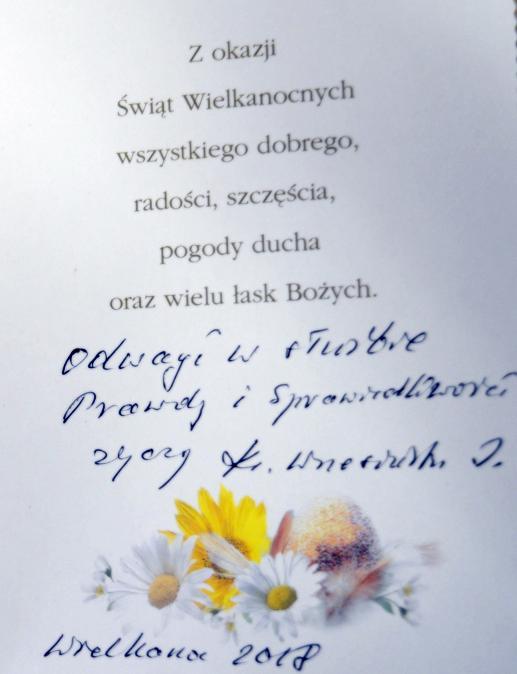 Z okazji
Świąt Wielkanocnych
wszystkiego dobrego,
radości, szczęścia,
pogody ducha
oraz wielu łask Bożych.
Odwagi w służbie
Prawdy i Sprawiedliwości
życzy Ks.
Wielkanoc 2018